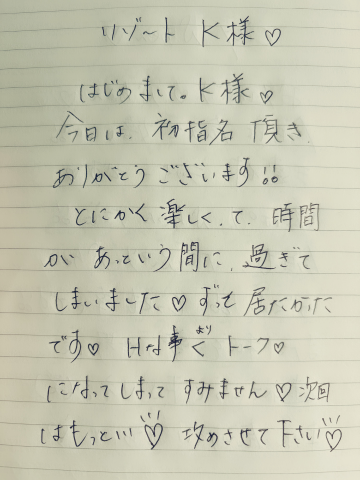 リゾート K様♡
はじめまして。K様♡
今日は、初指名 頂き、
ありがとうございます!!
とにかく 楽しくって、時間
が あっという間に、過ぎて
しまいました♡ ずって 居たかった
です♡ Hな事く より トーク♡
になってしまって すみません♡ 次回
はもっと…♡ 攻めさせて下さい♡